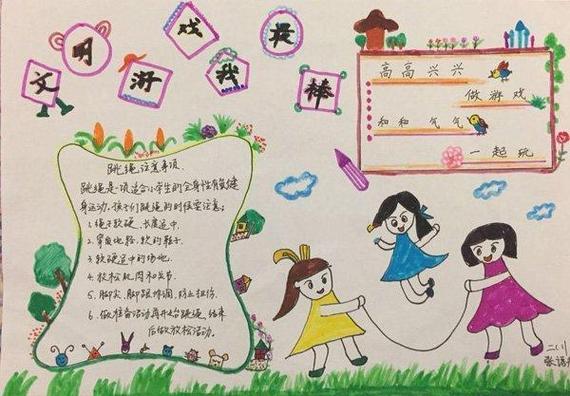 文明游戏我最棒
高高兴兴
做游戏
和和气气
一起玩
跳绳注意事项
跳绳是一项适合小学生的全身性有氧健
身运动。孩子们跳绳的时候要注意：
1.绳子软硬、长度适中.
2.穿质地轻、软的鞋子.
3.软硬适中的场地.
4.放松肌肉和关节.
5.脚尖、脚跟协调,防止扭伤.
6.做准备活动再开始跳绳,结束
后做放松活动.
二(1)
张